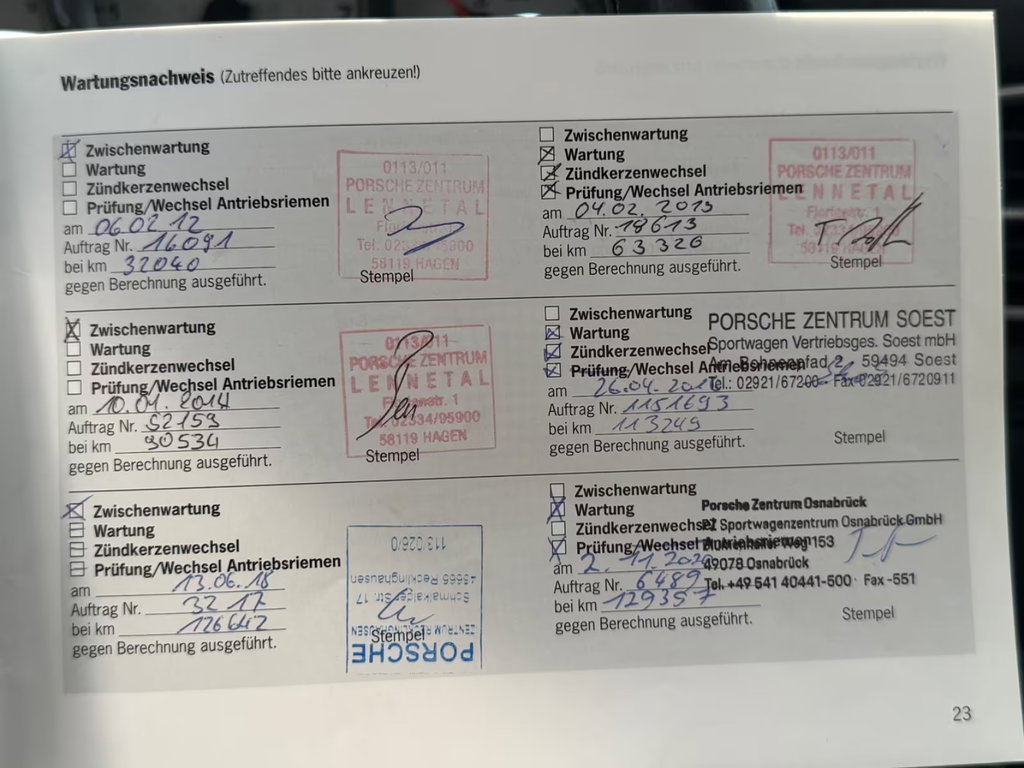 Wartungsnachweis (Zutreffendes bitte ankreuzen!)
Zwischenwartung
Wartung
Zündkerzenwechsel
Prüfung/Wechsel Antriebsriemen
am 06.02.12
Auftrag Nr. 16091
bei km 32040
gegen Berechnung ausgeführt.
0113/011
PORSCHE ZENTRUM
LENNETAL
58119 HAGEN
Stempel
Zwischenwartung
Wartung
Zündkerzenwechsel
Prüfung/Wechsel Antriebsriemen
am 04.02.2013
Auftrag Nr. 18613
bei km 63326
gegen Berechnung ausgeführt.
0113/011
PORSCHE ZENTRUM
LENNETAL
Stempel
Zwischenwartung
Wartung
Zündkerzenwechsel
Prüfung/Wechsel Antriebsriemen
am 10.01.2014
Auftrag Nr. 52153
bei km 90534
gegen Berechnung ausgeführt.
0113/011
PORSCHE ZENTRUM
LENNETAL
Tel. 02334/95900
58119 HAGEN
Stempel
Zwischenwartung
Wartung
Zündkerzenwechsel
Prüfung/Wechsel Antriebsriemen
am 26.04.
Auftrag Nr. 1151693
bei km 113249
gegen Berechnung ausgeführt.
PORSCHE ZENTRUM SOEST
Sportwagen Vertriebsges. Soest mbH
59494 Soest
Tel.: 02921/67200 Fax 02921/6720911
Stempel
Zwischenwartung
Wartung
Zündkerzenwechsel
Prüfung/Wechsel Antriebsriemen
am 13.06.18
Auftrag Nr. 3217
bei km 126642
gegen Berechnung ausgeführt.
113 026/0
45665 Recklinghausen
Schmalkalder Str. 17
ZENTRUM RECKLINGHAUSEN
PORSCHE
Stempel
Zwischenwartung
Wartung
Zündkerzenwechsel
Prüfung/Wechsel Antriebsriemen
am 2.11.2020
Auftrag Nr. 6489
bei km 129357
gegen Berechnung ausgeführt.
Porsche Zentrum Osnabrück
PZ Sportwagenzentrum Osnabrück GmbH
Weg 153
49078 Osnabrück
Tel. +49 541 40441-500 · Fax -551
Stempel
23